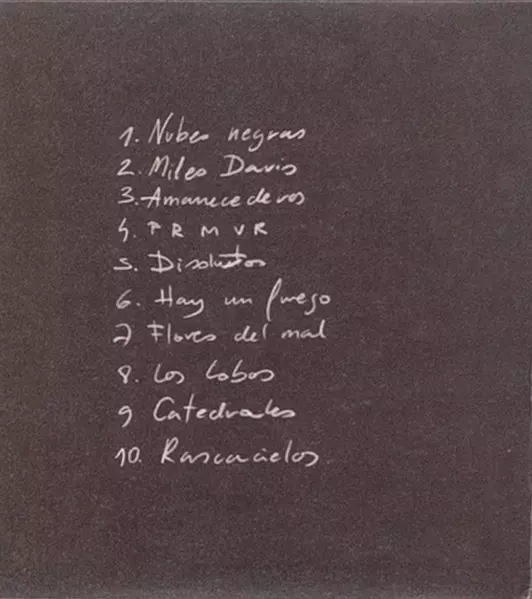 1. Nubes negras
2. Miles Davis
3. Amanece de vos
4. P R M V R
5. Disolutos
6. Hay un fuego
7 Flores del mal
8. Los Lobos
9 Catedrales
10. Rascacielos